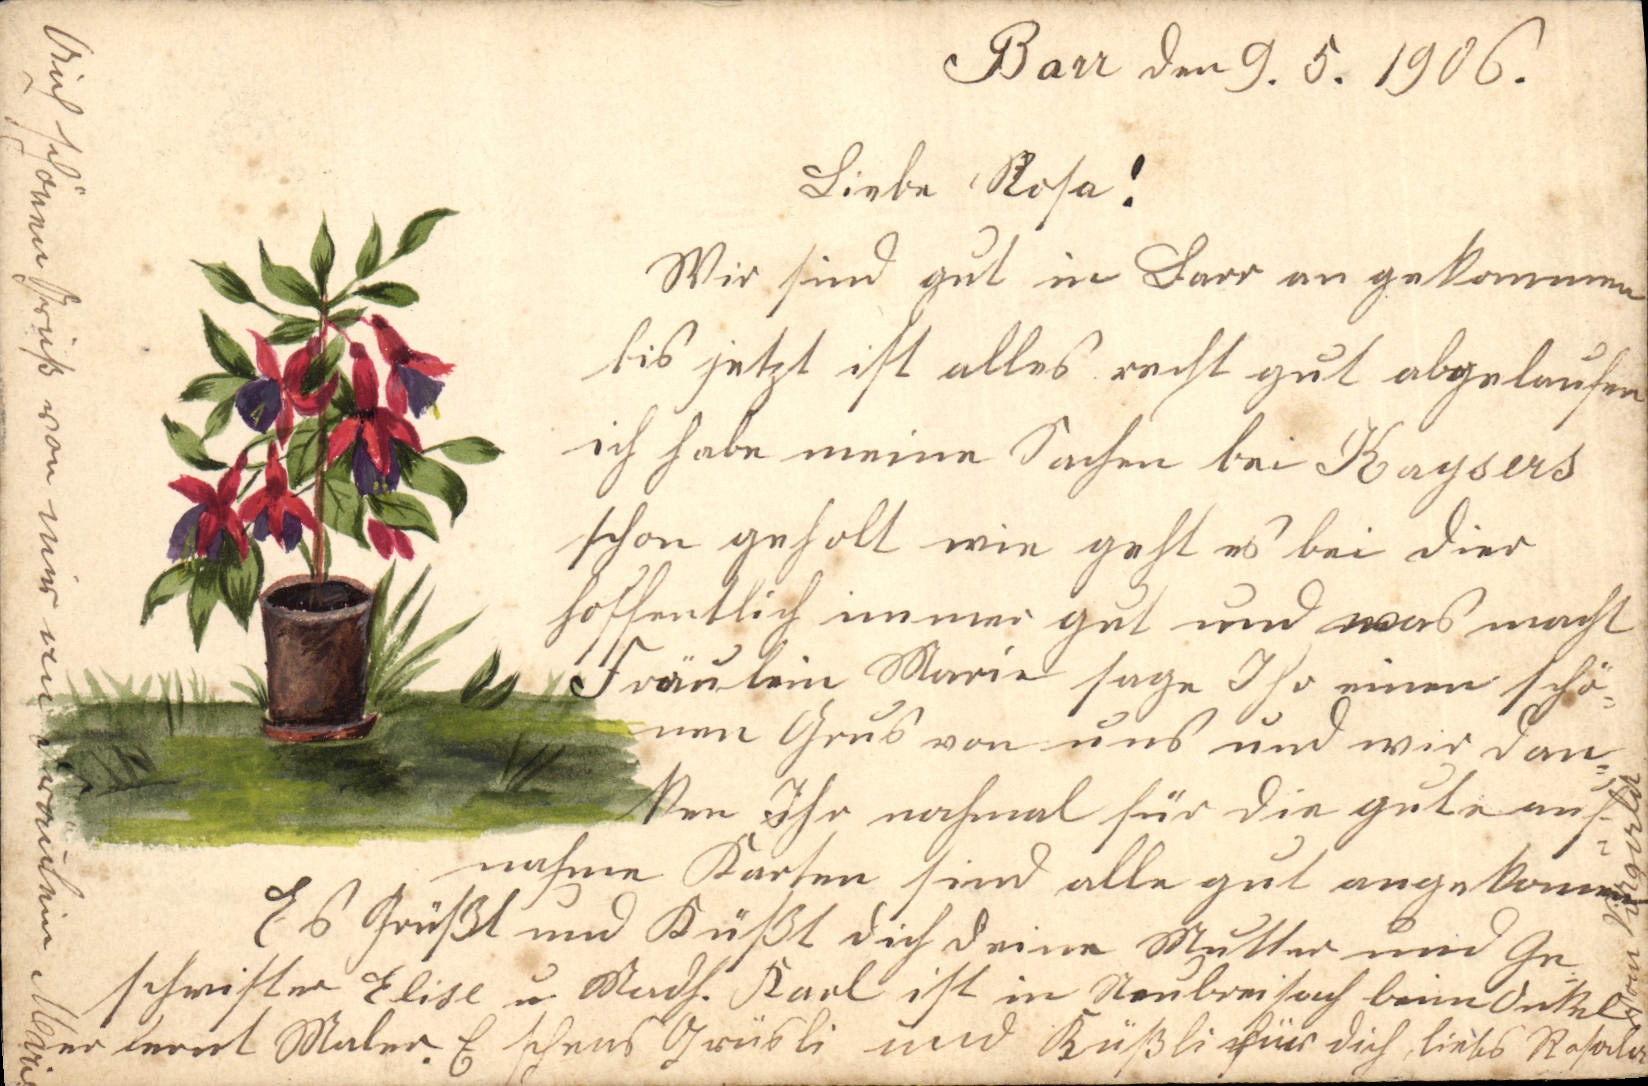 Barr den 9. 5. 1906.
Liebe Rosa!
Wir sind gut in Barr an gekommen
bis jetzt ist alles recht gut abgelaufen
ich habe meine Sachen bei Kaysers
schon geholt wie geht es bei dier
hoffentlich immer gut und was macht
Fräulein Marie sage Ihr einen schö-
nen Grus von uns und wir dan-
ken Ihr nochmal für die gute auf-
nahme Karten sind alle gut angekommen
Es Grüßt und Küßt dich deine Mutter und Ge
schwister Elise u Math. Karl ist in Neubreisach beim Onkel
er lernt Maler. E schens Grüsli und Küßli für dich, liebs
von
ein schönen Gruß von mir an Fräulein Marie